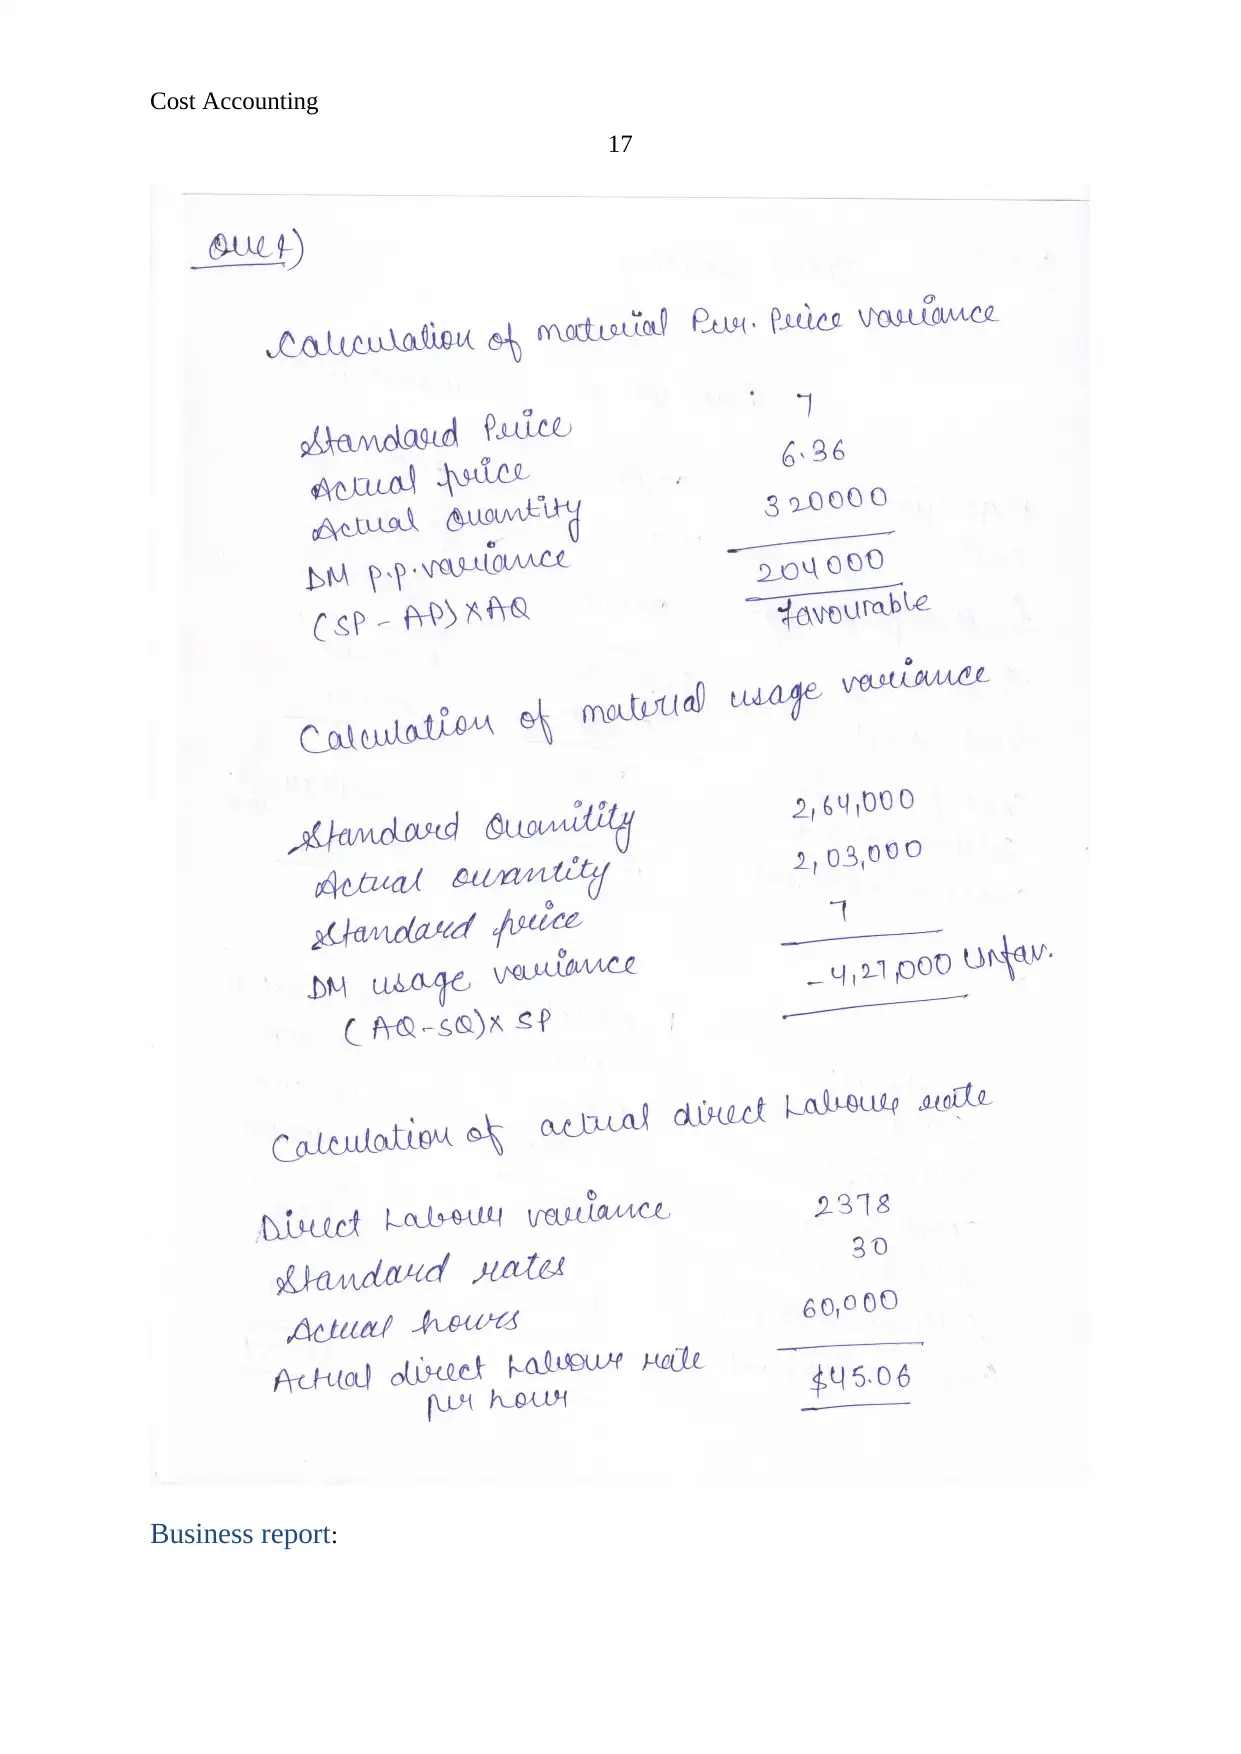 Cost Accounting
17
Que 7)
Calculation of material Pur. Price variance
Standard Price 7
Actual price 6.36
Actual Quantity 320000
DM p.p. variance 204000
(SP - AP) X AQ favourable
Calculation of material usage variance
Standard Quanitity 2,64,000
Actual quantity 2,03,000
Standard price 7
DM usage variance - 4,27,000 Unfav.
(AQ - SQ) X SP
Calculation of actual direct Labour rate
Direct Labour variance 2378
Standard rates 30
Actual hours 60,000
Actual direct Labour rate $45.06
per hour
Business report: